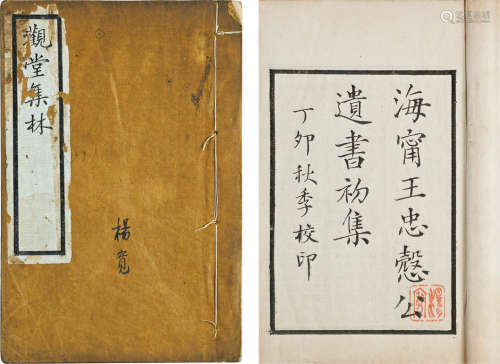 觀堂集林
楊寬
海甯王忠慤公
遺書初集
丁卯秋季校印